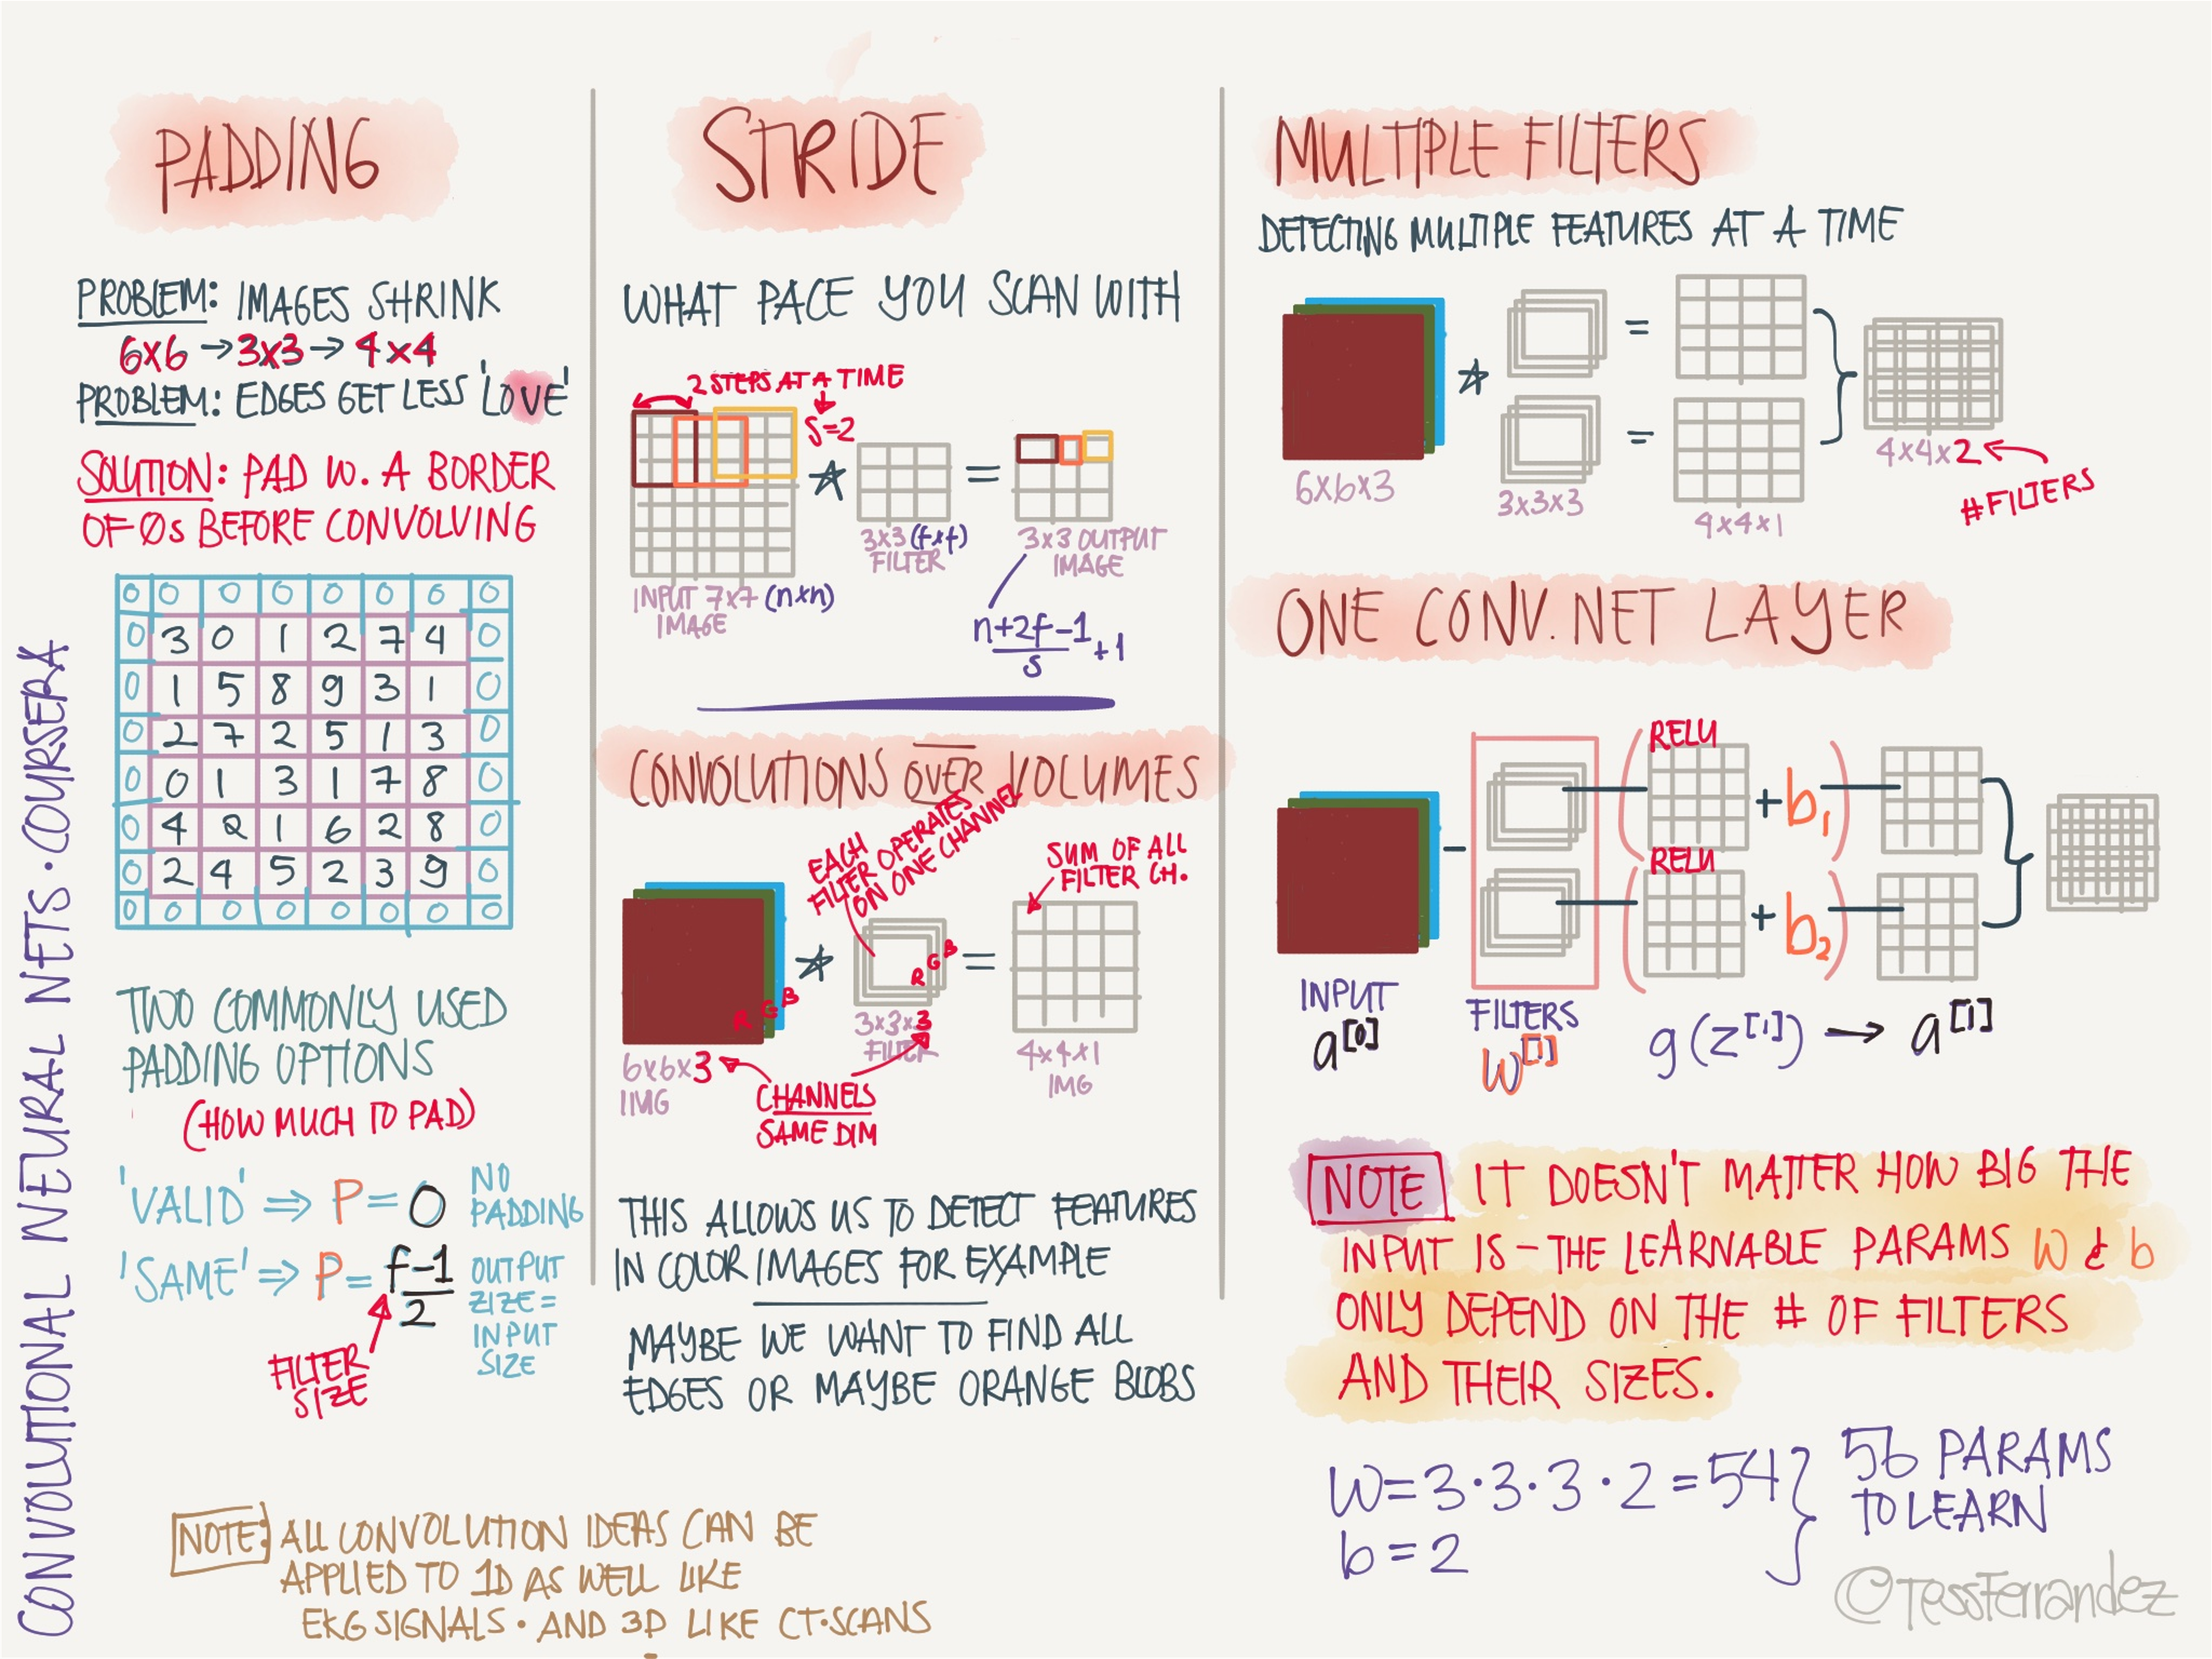 CONVOLUTIONAL NEURAL NETS · COURSERA
PADDING
PROBLEM: IMAGES SHRINK
6x6 → 3x3 → 4x4
PROBLEM: EDGES GET LESS 'LOVE'
SOLUTION: PAD W. A BORDER
OF 0s BEFORE CONVOLVING
0 0 0 0 0 0 0 0
0 3 0 1 2 7 4 0
0 1 5 8 9 3 1 0
0 2 7 2 5 1 3 0
0 0 1 3 1 7 8 0
0 4 2 1 6 2 8 0
0 2 4 5 2 3 9 0
0 0 0 0 0 0 0 0
TWO COMMONLY USED
PADDING OPTIONS
(HOW MUCH TO PAD)
'VALID' => P = 0 NO
PADDING
'SAME' => P = f-1/2
OUTPUT
ZIZE =
INPUT
SIZE
FILTER
SIZE
NOTE: ALL CONVOLUTION IDEAS CAN BE
APPLIED TO 1D AS WELL LIKE
EKG SIGNALS · AND 3D LIKE CT·SCANS
STRIDE
WHAT PACE YOU SCAN WITH
2 STEPS AT A TIME
S=2
* =
INPUT 7x7 (nxn)
IMAGE
3x3 (fxf)
FILTER
3x3 OUTPUT
IMAGE
n+2f-1/s +1
CONVOLUTIONS OVER VOLUMES
EACH
FILTER OPERATES
ON ONE CHANNEL
SUM OF ALL
FILTER CH.
R G B
* =
R G B
6x6x3
IMG
3x3x3
FILTER
4x4x1
IMG
CHANNELS
SAME DIM
THIS ALLOWS US TO DETECT FEATURES
IN COLOR IMAGES FOR EXAMPLE
MAYBE WE WANT TO FIND ALL
EDGES OR MAYBE ORANGE BLOBS
MULTIPLE FILTERS
DETECTING MULTIPLE FEATURES AT A TIME
* =
=
6x6x3
3x3x3
4x4x1
4x4x2
#FILTERS
ONE CONV. NET LAYER
RELU
+ b1
RELU
+ b2
INPUT
a[0]
FILTERS
W[1]
g(z[1]) → a[1]
NOTE IT DOESN'T MATTER HOW BIG THE
INPUT IS - THE LEARNABLE PARAMS W & b
ONLY DEPEND ON THE # OF FILTERS
AND THEIR SIZES.
W = 3·3·3·2 = 54
b = 2
56 PARAMS
TO LEARN
©TessFerrandez